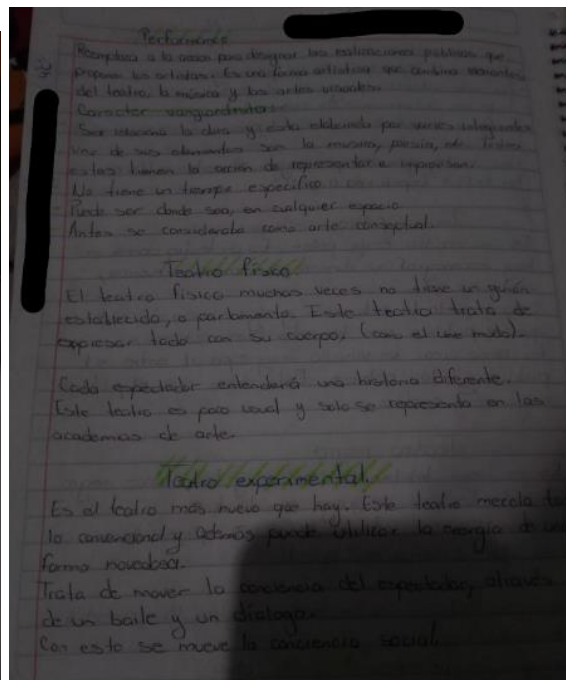 Performance
Reemplaza a la accion para designar las realizaciones públicas que
proponen los artistas. Es una forma artística que combina elementos
del teatro, la música y las artes visuales.
Caracter vanguardista:
Ser relaciona la obra y está elaborada por varios integrantes
Uno de sus elementos son la musica, poesia, etc
estas tienen la acción de representar e improvisar.
No tiene un tiempo específico
Puede ser donde sea, en cualquier espacio.
Antes se consideraba como arte conseptual.
Teatro físico
El teatro físico muchas veces no tiene un guión
establecido, o parlamento. Este teatro trata de
expresar todo con su cuerpo, (como el cine mudo).
Cada espectador entenderá una historia diferente.
Este teatro es poco usual y solo se representa en las
academias de arte.
Teatro experimental.
Es el teatro más nuevo que hay. Este teatro mezcla
lo convencional y además puede utilizar la energia de una
forma novedosa.
Trata de mover la conciencia del espectador, através
de un baile y un dialogo.
Con esto se mueve la conciencia social.